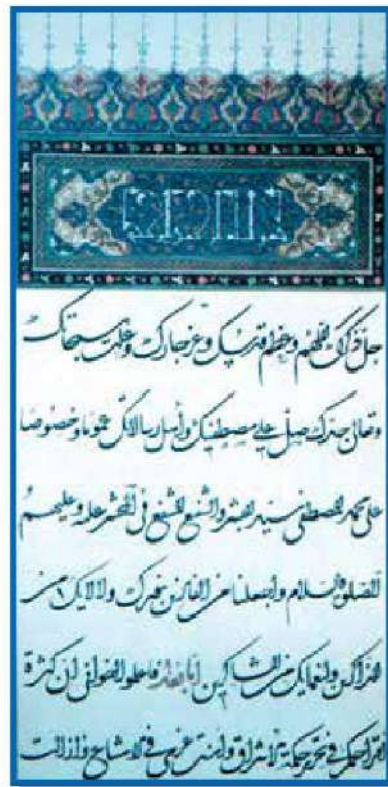 بسم الله الرحمن الرحيم
جل ذكرك اللهم وعظم قدسك وعز جارك وعلت سبحاتك
وتعالى جدك صل على مصطفيك وأهل رسالاتك عموما وخصوصا
على محمد المصطفى سيد البشر والشفيع المشفع في المحشر عليه وعليهم
الصلوة والسلام واجعلنا من الفائزين بنورك ولآلائك من
الذاكرين ولنعمائك من الشاكرين أما بعد فاعلموا إخواني أن كثرة
اقتراحكم في تحرير حكمة الإشراق وهنت عزمي في الامتناع وأزالت